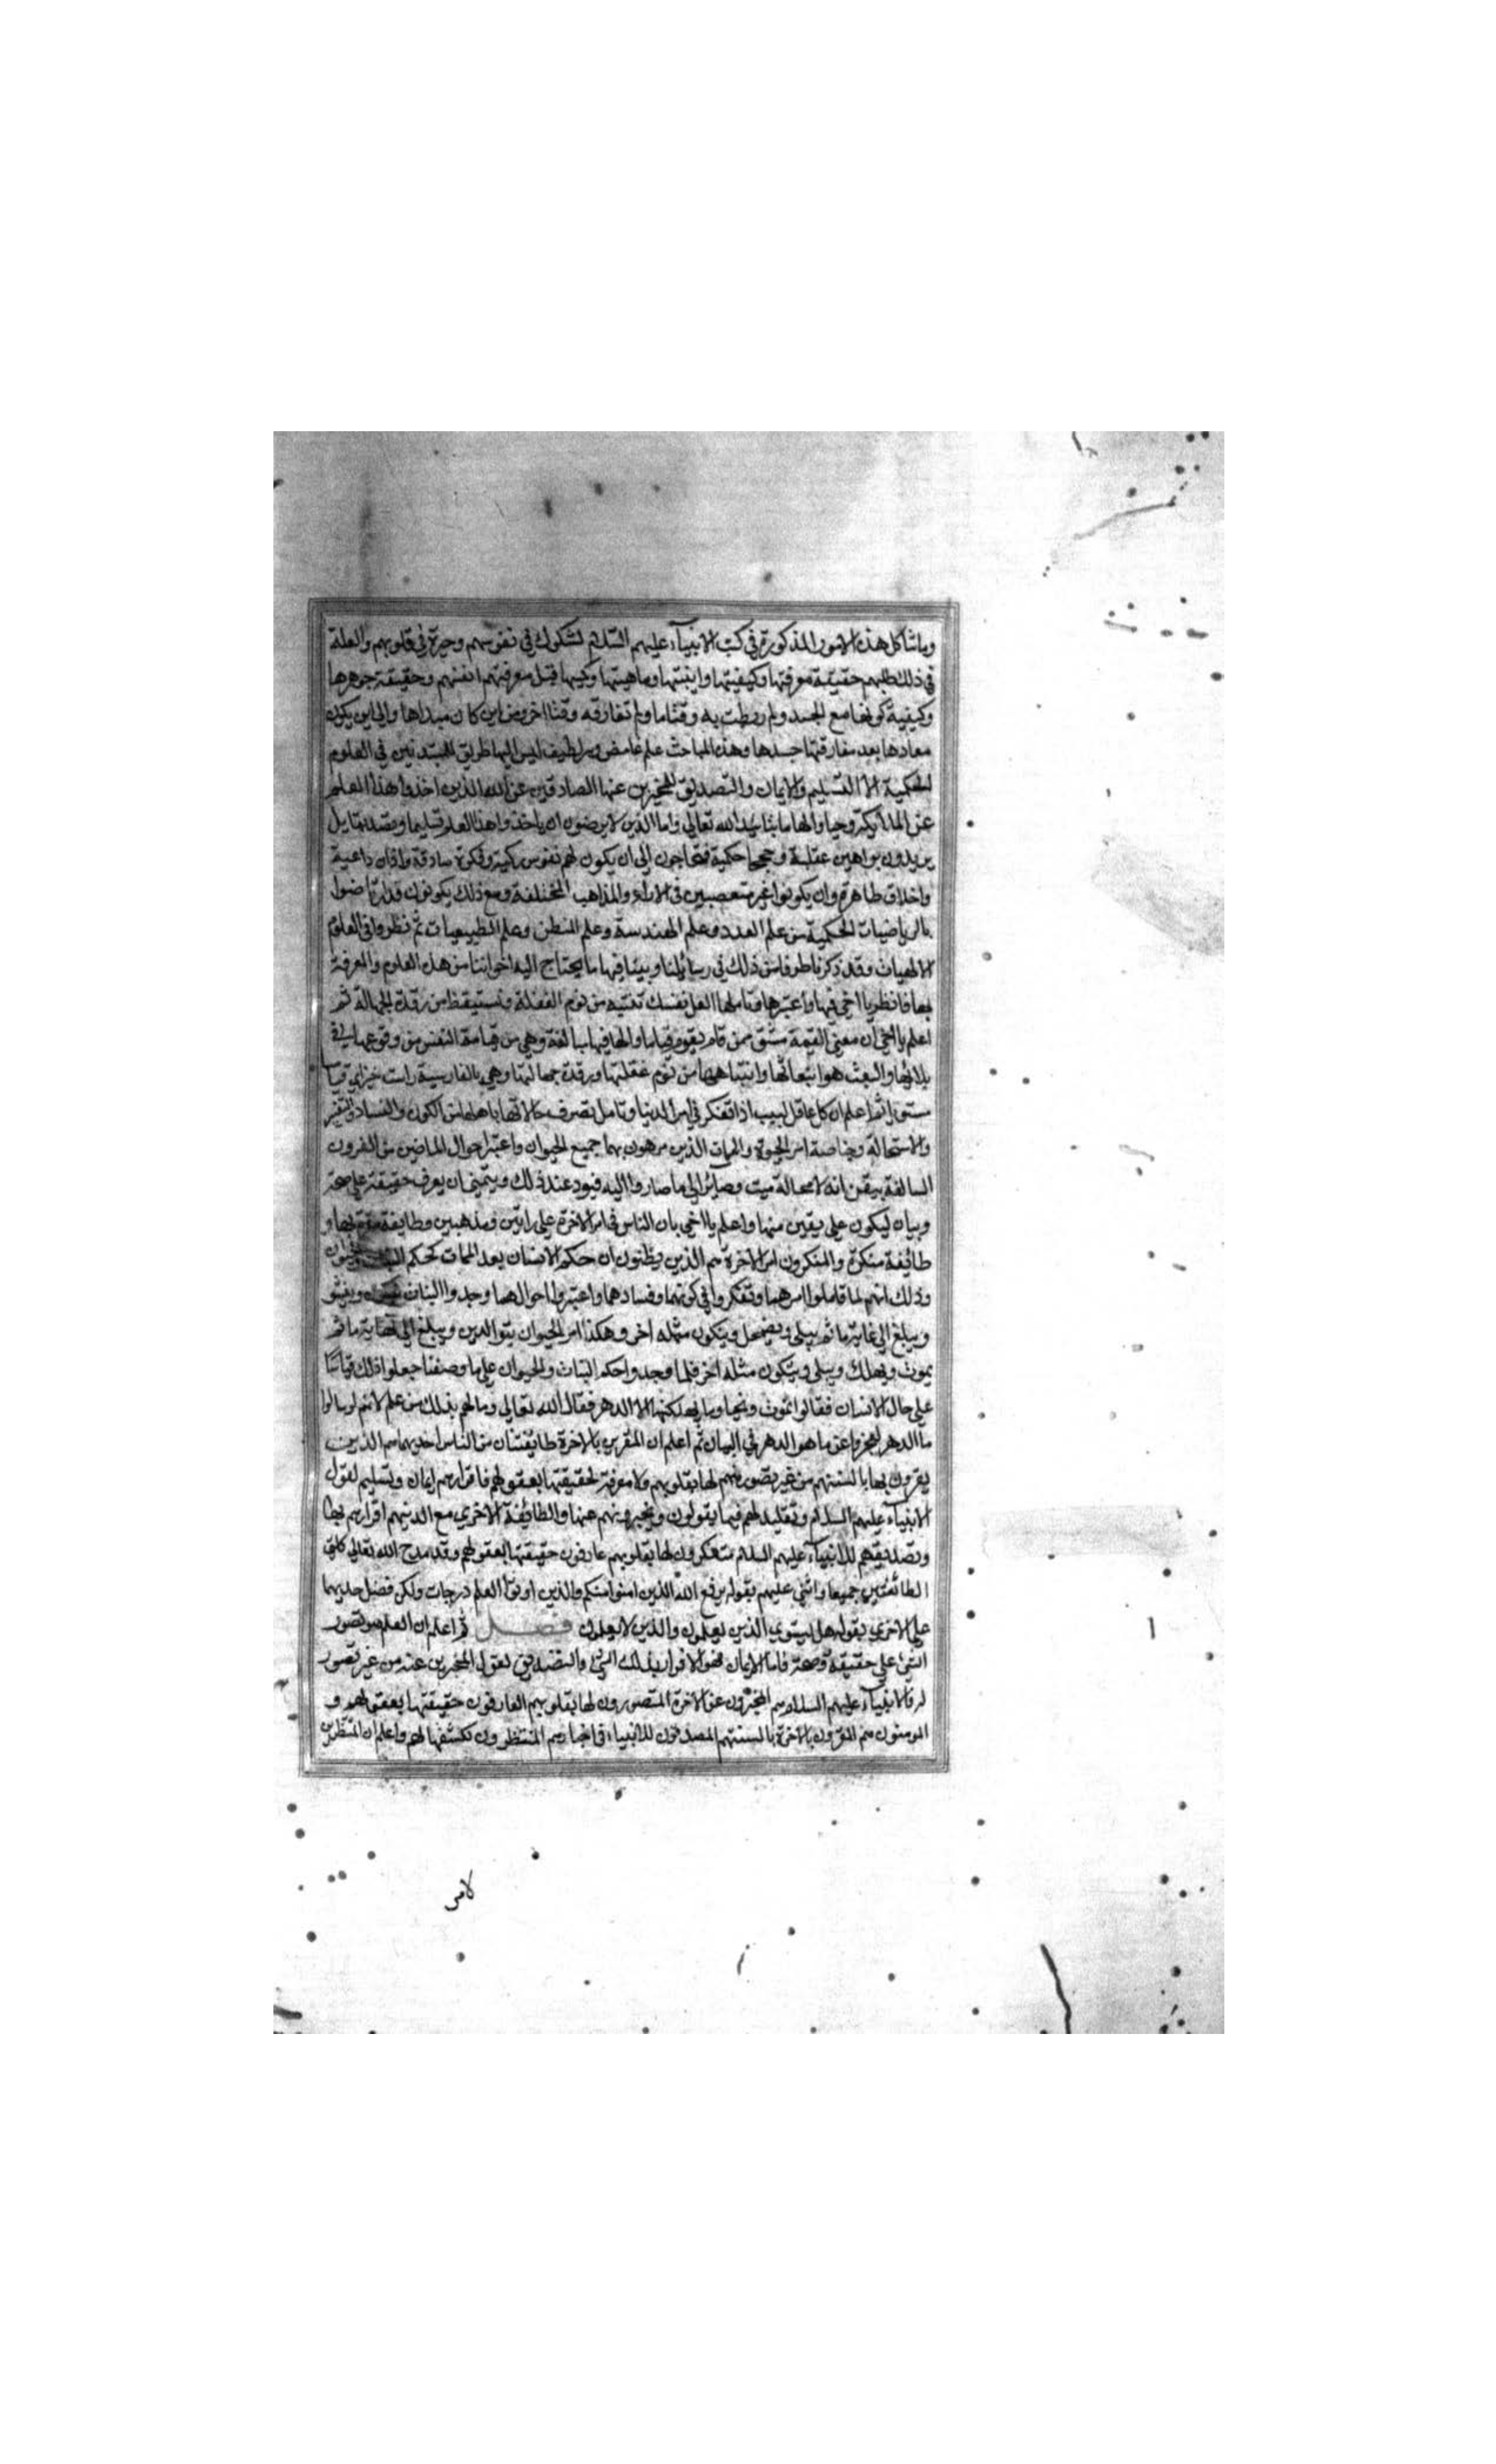 وما شاكل هذه الامور المذكورة في كتب الانبيآء عليهم السّلام لشكوك في نفوسهم وحيرة في قلوبهم والعلة
في ذلك طلبهم حقيقة معرفتها وكيفيتها واينيتها وماهيتها وكميتها قبل معرفتهم انفسهم وحقيقة جوهرها
وكيفية كونها مع الجسد ولم ربطت به وقتاما ولم تفارقه وقتا اخر ومن اين كان مبداها والى اين يكون
معادها بعد مفارقتها جسدها وهذه المباحث علم غامض وسر لطيف ليس اليها طريق للمبتدئين في العلوم
الحكمية الا التسليم والايمان والتصديق للمخبرين عنها الصادقين عن الله الذين اخذوا هذا العلم
عن الملائكة وحيا والهاما بتائيد الله تعالى واما الذين لا يرضون ان ياخذوا هذا العلم تسليما وتصديقا بل
يريدون براهين عقلية وحججا حكمية فيحتاجون الى ان يكون لهم نفوس زكية وفكرة صادقة واذان داعية
واخلاق طاهرة وان يكونوا غير متعصبين في الاراء والمذاهب المختلفة ومع ذلك يكونون قد ارتاضوا
بالرياضيات الحكمية من علم العدد وعلم الهندسة وعلم المنطق وعلم الطبيعيات ثم نظروا في العلوم
الالهيات وقد ذكرنا طرفا من ذلك في رسائلنا وبينا فيها ما يحتاج اليه اخواننا من هذه العلوم والمعرفة
بها فانظر يا اخي فيها واعتبرها وتاملها لعل نفسك تنتبه من نوم الغفلة وتستيقظ من رقدة الجهالة ثم
اعلم يا اخي ان معنى القيمة مشتق من قام يقوم قياما والها فيها مبالغة وهي من قيامة النفس من وقوعها في
بلائها والبعث هو انبعاثها وانتباهها من نوم غفلتها ورقدة جهالتها وهي بالفارسية راست خيز اي قياما
مستويا ثم اعلم ان كل عاقل لبيب اذا تفكر في امر الدنيا وتامل تصرف حالاتها باهلها من الكون والفساد والتغير
والاستحالة وخاصة امر الحيوة والممات الذين مرهون بهما جميع الحيوان واعتبر احوال الماضين من القرون
السالفة تيقن انه لا محالة ميت وصائر الى ما صاروا اليه فيود عند ذلك ويتمنى ان يعرف حقيقة علي صحة
وبيان ليكون على يقين منها واعلم يا اخي بان الناس في امر الاخرة على رايين ومذهبين وطايفة مقرة بها و
طائفة منكرة والمنكرون امر الاخرة هم الذين يظنون ان حكم الانسان بعد الممات كحكم النبات والحيوان
وذلك انهم لما تاملوا امرهما وتفكروا في كونهما وفسادهما واعتبروا احوالهما وجدوا النبات يتكون وينشو
ويبلغ الى غاية ما ثم يبلى ويضمحل ويتكون مثله اخر وهكذا امر الحيوان يتوالدين ويبلغ الى نهاية ما ثم
يموت ويهلك ويبلى ويتكون مثله اخر فلما وجدوا حكم النبات والحيوان على ما وصفنا جعلوا ذلك قياسًا
على حال الانسان فقالوا نموت ونحيا وما يهلكنا الا الدهر فقال الله تعالى وما لهم بذلك من علم لانهم لو سالوا
ما الدهر لعجزوا عن ما هو الدهر في البيان ثم اعلم ان المقرين بالاخرة طايفتان من الناس احديهما هم الذين
يقرون بها بالسنتهم من غير تصور منهم لها بقلوبهم ولا معرفة لحقيقتها بعقولهم فاقرارهم ايمان وتسليم لقول
الانبيآء عليهم السلام وتقليد لهم فيما يقولون ويخبرونهم عنها والطائفة الاخرى مع الدينهم اقرارهم بها
وتصديقهم للانبيآء عليهم السلام متفكرون لها بقلوبهم عارفون حقيقتها بعقولهم وقد مدح الله تعالى كلتى
الطائفتين جميعا واثنى عليهم بقوله يرفع الله الذين امنوا منكم والذين اوتوا العلم درجات ولكن فضل احديهما
على الاخرى بقوله هل يستوي الذين يعلمون والذين لا يعلمون فصل ثم اعلم ان العلم هو تصور
الشئ على حقيقة وصحة فاما الايمان فهو الاقرار بذلك الشئ والتصديق لقول المخبرين عنه من غير تصور
له فالانبيآء عليهم السلام هم المخبرون عن الاخرة المتصورون لها بقلوبهم العارفون حقيقتها بعقولهم و
المومنون هم المقرون بالاخرة بالسنتهم المصدقون للانبياء في اخبارهم المنتظرون تكشفها لهم واعلم ان المنتظرين
لامر